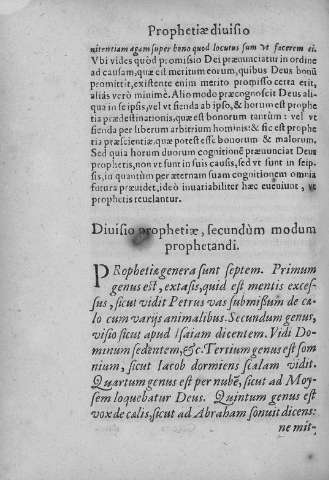 Prophetiæ diuisio
nitentiam agam super bono quod locutus sum vt facerem ei.
Vbi vides quòd promissio Dei prænunciatur in ordine
ad causam, quæ est meritum eorum, quibus Deus bonũ
promittit, existente enim merito promisso certa erit,
aliàs verò minimè. Alio modo præcognoscit Deus ali-
qua in seipsis, vel vt fienda ab ipso, & horum est prophe
tia prædestinationis, quæ est bonorum tantùm: vel vt
fienda per liberum arbitrium hominis: & sic est prophe
tia præscientiæ, quæ potest esse bonorum & malorum.
Sed quia horum duorum cognitionẽ prænunciat Deus
prophetis, non vt sunt in suis causis, sed vt sunt in seip-
sis, in quantùm per æternam suam cognitionem omnia
futura præuidet, ideò inuariabiliter hæc eueniunt, vt
prophetis reuelantur.
Diuisio prophetiæ, secundùm modum
prophetandi.
PRophetiæ genera sunt septem. Primum
genus est, extasis, quid est mentis exces-
sus, sicut vidit Petrus vas submissũm de cæ
lo cum varijs animalibus. Secundum genus,
visio sicut apud Isaiam dicentem. Vidi Do-
minum sedentem, &c. Tertium genus est som
nium, sicut Iacob dormiens scalam vidit.
Quartum genus est per nubẽ, sicut ad Moy-
sem loquebatur Deus. Quintum genus est
vox de cælis, sicut ad Abraham sonuit dicens:
ne mit-